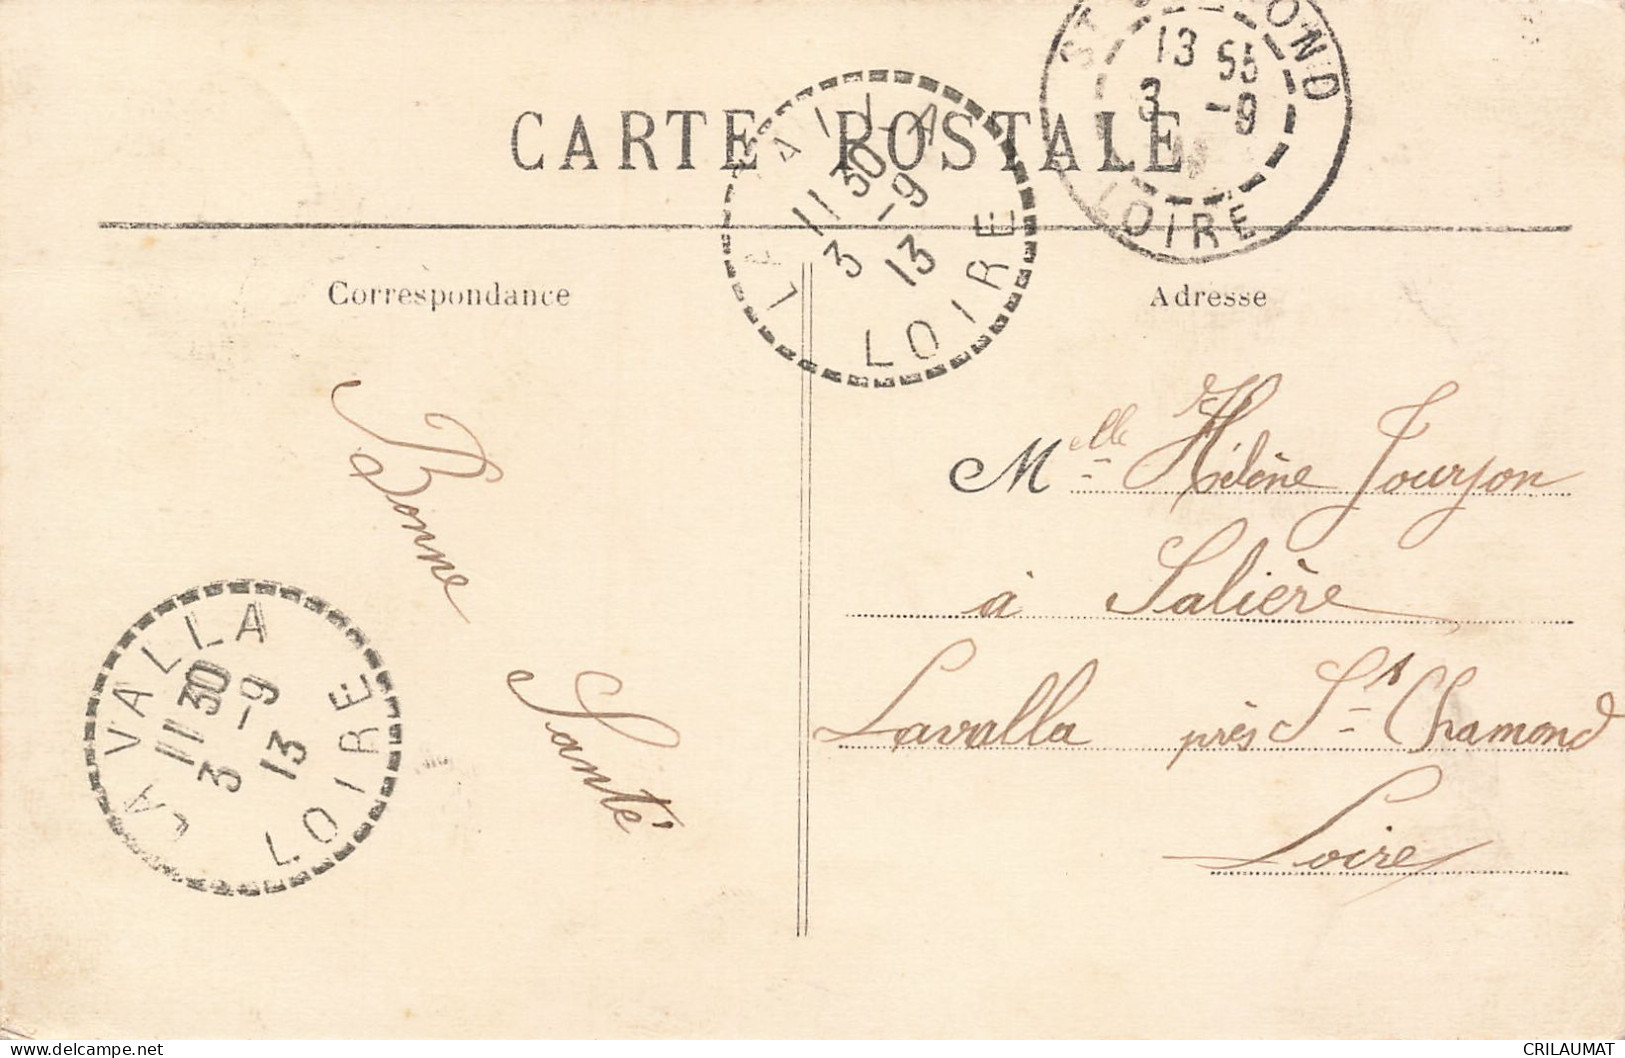 CARTE POSTALE
ST CHAMOND
13 55
3 -9
LOIRE
LA VALLA
11 30
3 -9
13
LOIRE
Correspondance
Adresse
Bonne
Santé
Melle Hélène Jourjon
à Salière
Lavalla près St Chamond
Loire
LA VALLA
11 30
3 -9
13
LOIRE
CRILAUMAT